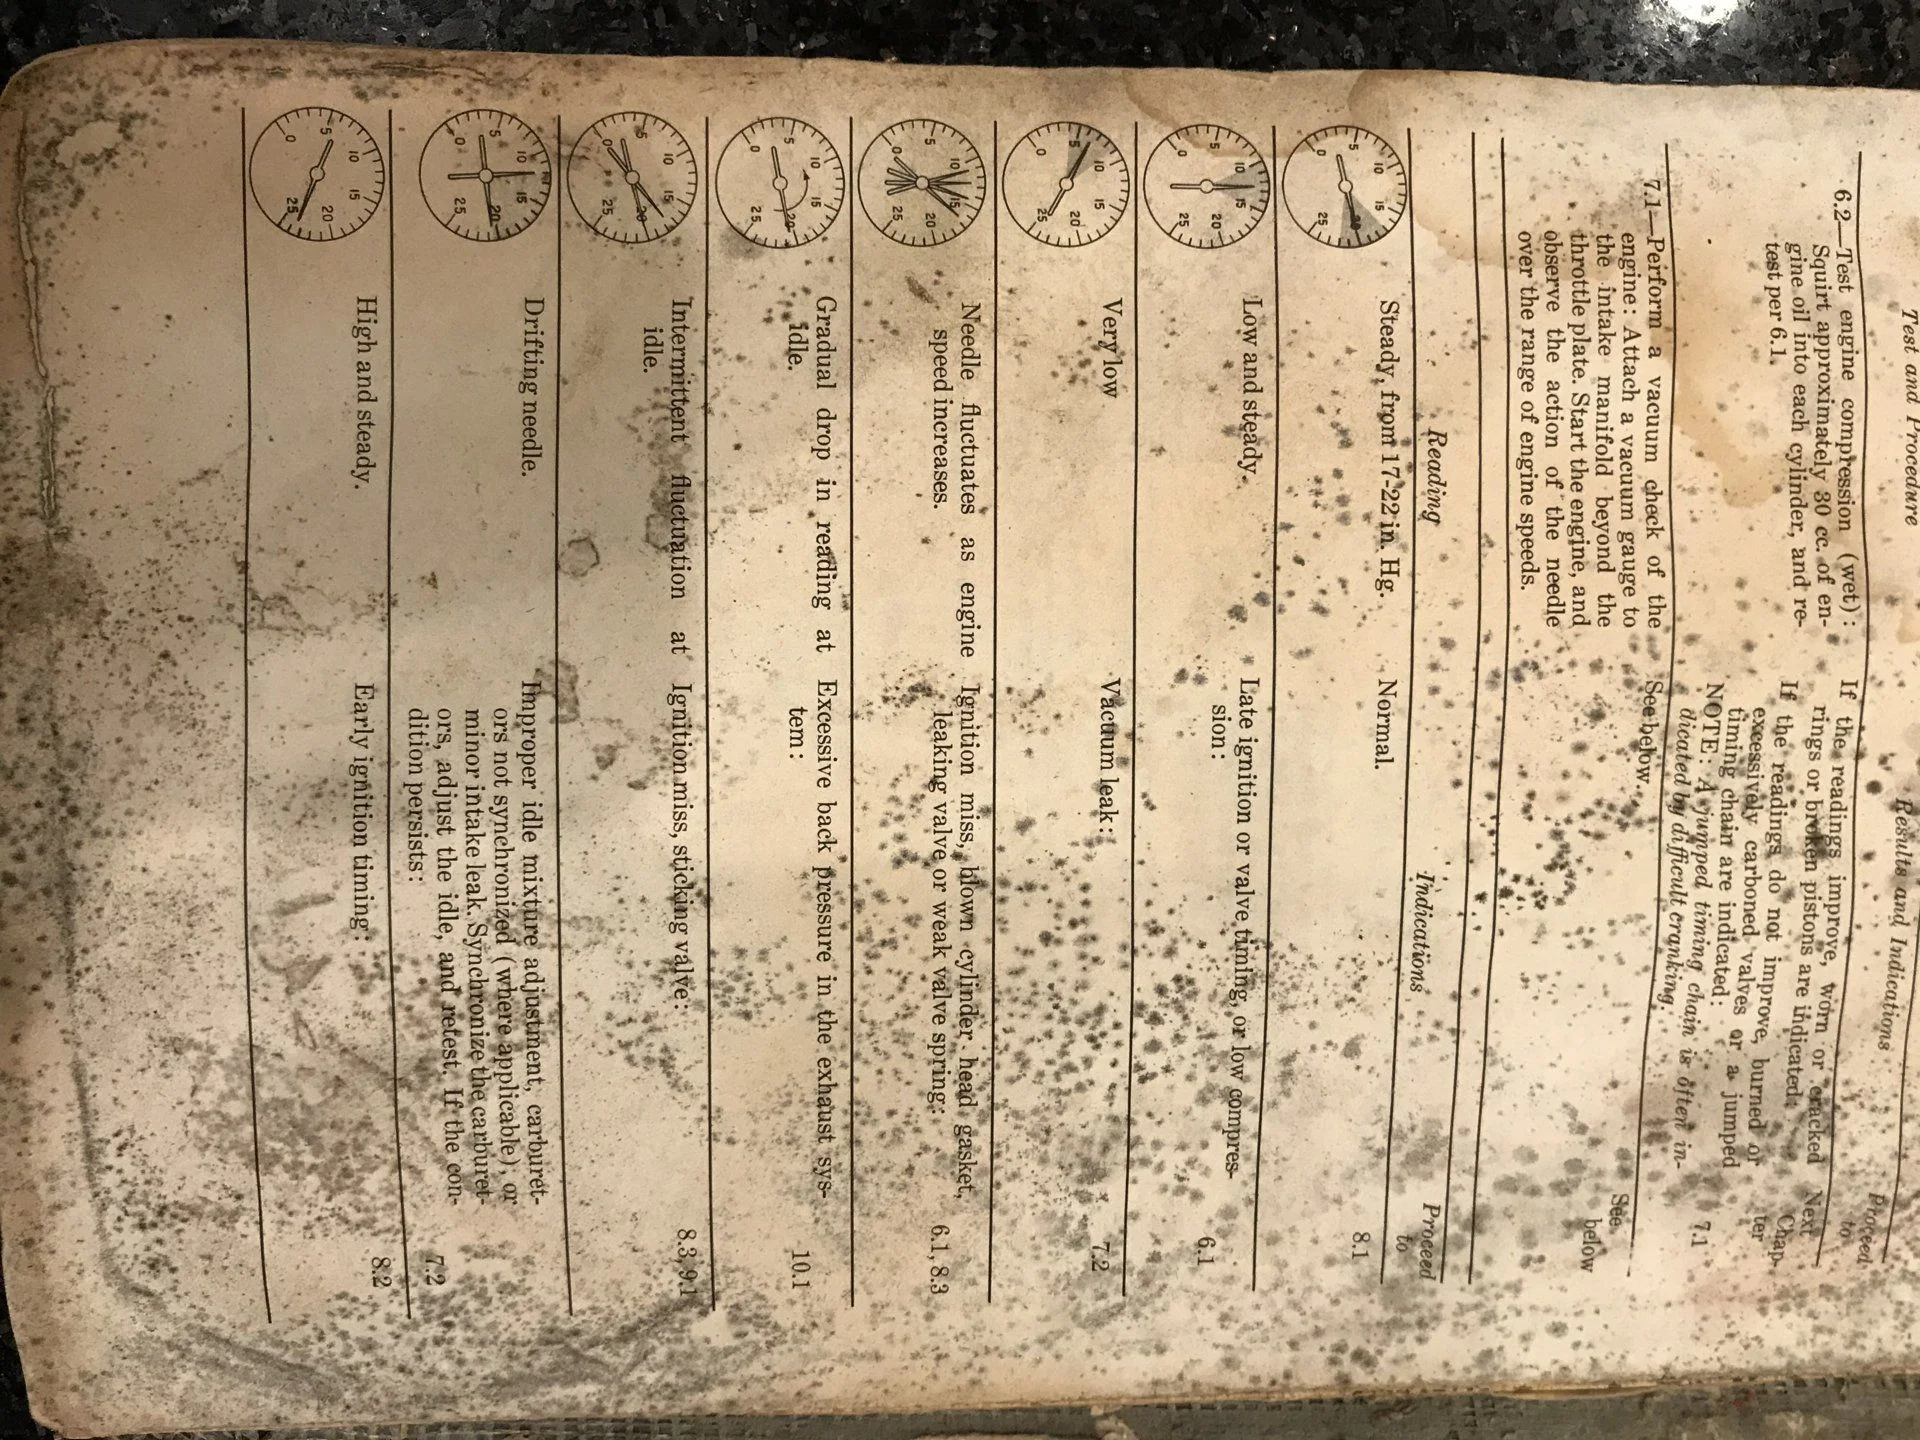 Test and Procedure
Results and Indications
Proceed
to
6.2—Test engine compression (wet):
Squirt approximately 30 cc. of en-
gine oil into each cylinder, and re-
test per 6.1.
If the readings improve, worn or cracked
rings or broken pistons are indicated:
Next
Chap-
ter
If the readings do not improve, burned or
excessively carboned valves or a jumped
timing chain are indicated:
7.1
NOTE: A jumped timing chain is often in-
dicated by difficult cranking.
7.1—Perform a vacuum check of the
engine: Attach a vacuum gauge to
the intake manifold beyond the
throttle plate. Start the engine, and
observe the action of the needle
over the range of engine speeds.
See below.
See
below
Reading
Indications
Proceed
to
0 5 10 15 20 25
Steady, from 17-22 in. Hg.
Normal.
8.1
0 5 10 15 20 25
Low and steady.
Late ignition or valve timing, or low compres-
sion:
6.1
0 5 10 15 20 25
Very low
Vacuum leak:
7.2
0 5 10 15 20 25
Needle fluctuates as engine
speed increases.
Ignition miss, blown cylinder head gasket,
leaking valve or weak valve spring:
6.1, 8.3
0 5 10 15 20 25
Gradual drop in reading at
idle.
Excessive back pressure in the exhaust sys-
tem:
10.1
0 5 10 15 20 25
Intermittent fluctuation at
idle.
Ignition miss, sticking valve:
8.3, 9.1
0 5 10 15 20 25
Drifting needle.
Improper idle mixture adjustment, carburet-
ors not synchronized (where applicable), or
minor intake leak. Synchronize the carburet-
ors, adjust the idle, and retest. If the con-
dition persists:
7.2
0 5 10 15 20 25
High and steady.
Early ignition timing:
8.2